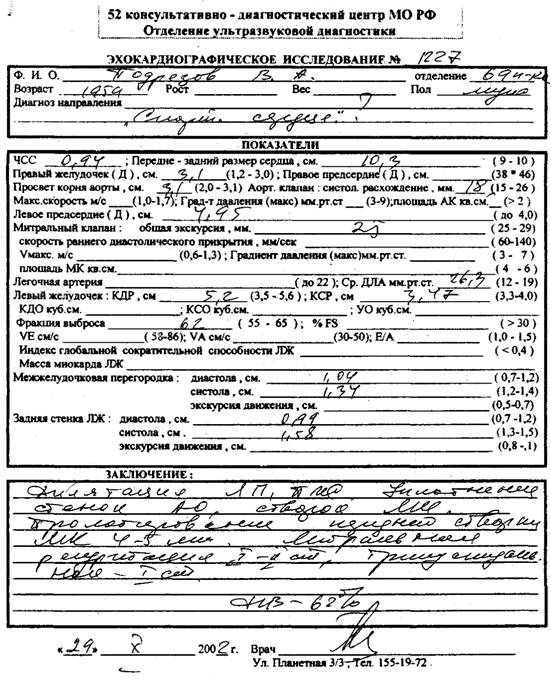 52 консультативно - диагностический центр МО РФ
Отделение ультразвуковой диагностики
ЭХОКАРДИОГРАФИЧЕСКОЕ ИССЛЕДОВАНИЕ № 1227
Ф. И. О. Подрезов В. А. отделение
Возраст 1959 Рост Вес Пол муж
Диагноз направления
"Спорт. сердце".
ПОКАЗАТЕЛИ
ЧСС 0,94 ; Передне - задний размер сердца , см. 10,3 (9 - 10)
Правый желудочек ( Д ) , см. 3,1 (1,2 - 3,0) ; Правое предсердие ( Д ), см. (38 * 46)
Просвет корня аорты, см. 3,1 (2,0 - 3,1) Аорт. клапан : систол. расхождение , мм. 18 (15 - 26 )
Макс.скорость м/с (1,0-1,7); Град-т давления (макс) мм.рт.ст (3-9);площадь АК кв.см. (> 2 )
Левое предсердие ( Д ), см. 4,95 ( до 4,0)
Митральный клапан : общая экскурсия , мм. 25 (25 - 29)
скорость раннего диастолического прикрытия , мм/сек (60-140)
Vмакс. м/с (0,6-1,3) ; Градиент давления (макс)мм.рт.ст. (3 - 7)
площадь МК кв.см. (4 - 6)
Легочная артерия ( до 22 ) ; Ср. ДЛА мм.рт.ст. 26,3 (12 - 19)
Левый желудочек : КДР , см 5,2 (3,5 - 5,6 ) ; КСР , см 3,47 (3,3-4,0)
КДО куб.см. ; КСО куб.см. ; УО куб.см.
Фракция выброса 62 ( 55 - 65 ) ; % FS ( > 30 )
VE см/с ( 58-86); VA см/с (30-50); E/A (1,0 - 1,5)
Индекс глобальной сократительной способности ЛЖ ( < 0,4 )
Масса миокарда ЛЖ
Межжелудочковая перегородка : диастола , см. 1,04 ( 0,7-1,2)
систола , см. 1,34 (1,2-1,4)
экскурсия движения , см. (0,5-0,7)
Задняя стенка ЛЖ : диастола , см. 0,99 (0,7 -1,2)
систола , см . 1,58 (1,3-1,5)
экскурсия движения , см. (0,8 -,1)
ЗАКЛЮЧЕНИЕ :
Дилятация ЛП, ПЖ. Уплотнение
стенок АО, створок МК.
Пролабирование передней створки
МК 4-5 мм. Митральная
регургитация I-II ст, трикуспидаль
ная - I ст
ФВ - 62%
« 29 » X 2002 г. Врач
Ул. Планетная 3/3 , Тел. 155-19-72